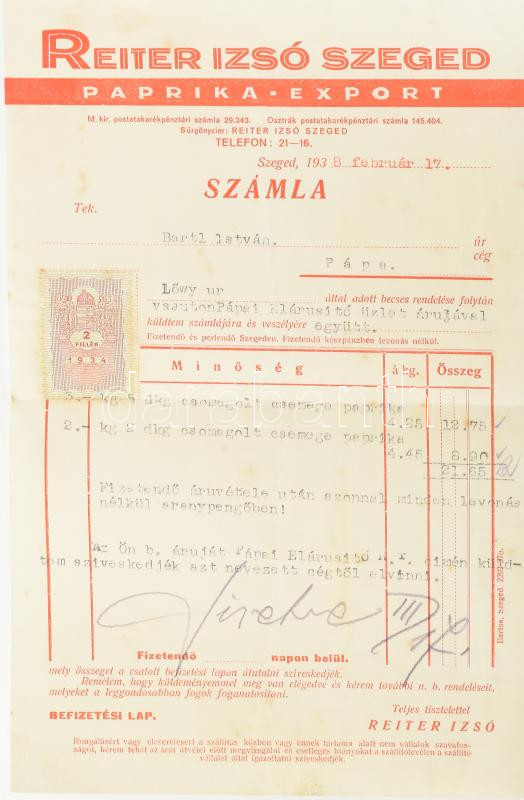 REITER IZSÓ SZEGED
PAPRIKA-EXPORT
M. kir. postatakarékpénztári számla 29.343. Osztrák postatakarékpénztári számla 145.404.
Sürgönycim: REITER IZSÓ SZEGED
TELEFON: 21—16.
Szeged, 1938 február 17.
SZÁMLA
Tek.
Bartl István. úr
cég
Pápa.
Lőwy ur által adott becses rendelése folytán
vasuton Pápai Elárusitó üzlet árujával
küldtem számlájára és veszélyére együtt.
Fizetendő és perlendő Szegeden. Fizetendő készpénzben levonás nélkül.
2
FILLÉR
1934
Minőség à kg. Összeg
3.- kg 5 dkg csomagolt csemege paprika
4.25 12.75
2.- kg 2 dkg csomagolt csemege paprika
4.45 8.90
21.65
Fizetendő áruvétele után azonnal minden levonás
nélkül aranypengőben!
Az Ön b. áruját Pápai Elárusitó R.T. cimén küld-
tem sziveskedjék azt nevezett cégtől elvinni.
III
Fizetendő napon belül.
mely összeget a csatolt befizetési lapon átutalni sziveskedjék.
Remélem, hogy küldeményemmel meg van elégedve és kérem további n. b. rendeléseit,
melyeket a leggondosabban fogok foganatositani.
Teljes tisztelettel
BEFIZETÉSI LAP. REITER IZSÓ
Rongálásért vagy elcserélésért a szállitás közben vagy ennek tartama alatt nem vállalok szavatos-
ságot, kérem tehát az árút átvétel előtt megvizsgálni és esetleges hiányokat a szállitólevélen a szállitó
vállalat által igazoltatni sziveskedjék.
Bartos, Szeged
darabanth